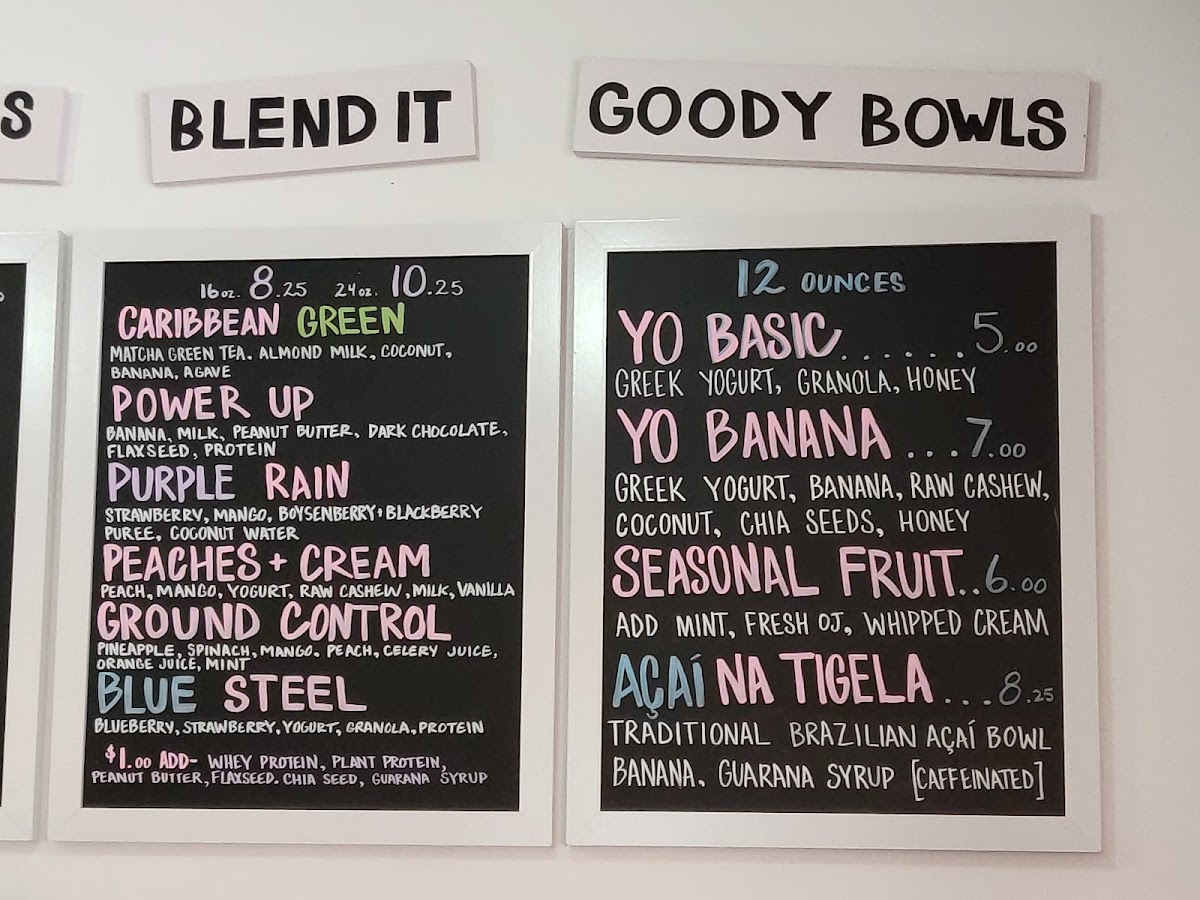 S
BLEND IT
16oz. 8.25 24oz. 10.25
CARIBBEAN GREEN
MATCHA GREEN TEA. ALMOND MILK, COCONUT,
BANANA, AGAVE
POWER UP
BANANA, MILK, PEANUT BUTTER, DARK CHOCOLATE,
FLAXSEED, PROTEIN
PURPLE RAIN
STRAWBERRY, MANGO, BOYSENBERRY + BLACKBERRY
PUREE, COCONUT WATER
PEACHES + CREAM
PEACH, MANGO, YOGURT, RAW CASHEW, MILK, VANILLA
GROUND CONTROL
PINEAPPLE, SPINACH, MANGO. PEACH, CELERY JUICE,
ORANGE JUICE, MINT
BLUE STEEL
BLUEBERRY, STRAWBERRY, YOGURT, GRANOLA, PROTEIN
$1.00 ADD- WHEY PROTEIN, PLANT PROTEIN,
PEANUT BUTTER, FLAXSEED. CHIA SEED, GUARANA SYRUP
GOODY BOWLS
12 OUNCES
YO BASIC......5.00
GREEK YOGURT, GRANOLA, HONEY
YO BANANA ...7.00
GREEK YOGURT, BANANA, RAW CASHEW,
COCONUT, CHIA SEEDS, HONEY
SEASONAL FRUIT..6.00
ADD MINT, FRESH OJ, WHIPPED CREAM
AÇAÍ NA TIGELA ...8.25
TRADITIONAL BRAZILIAN AÇAÍ BOWL
BANANA. GUARANA SYRUP [CAFFEINATED]